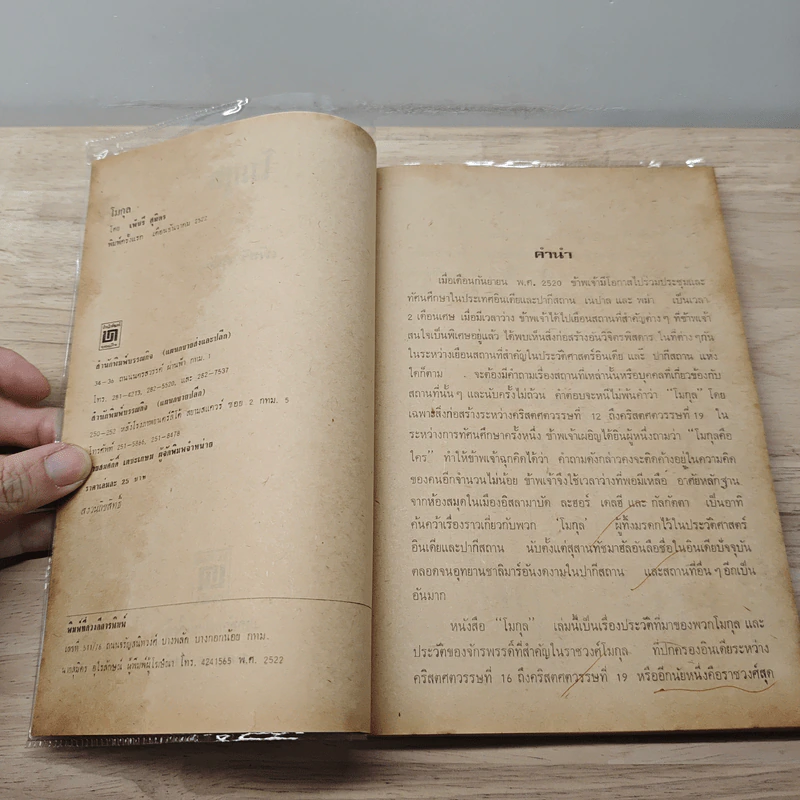 โมกุล
โดย เพ็ชรี สุมิตร
พิมพ์ครั้งแรก เดือนธันวาคม 2522
สำนักพิมพ์บรรณกิจ (แผนกขายส่งและปลีก)
34-36 ถนนนครสวรรค์ ผ่านฟ้า กทม. 1
โทร. 281-4213, 282-5520, และ 282-7537
สำนักพิมพ์บรรณกิจ (แผนกขายปลีก)
250-252 หลังโรงภาพยนตร์ลิโด้ สยามสแควร์ ซอย 2 กทม. 5
โทรศัพท์ 251-5866, 251-8478
เตชะเกษม ผู้จัดพิมพ์จำหน่าย
ราคาเล่มละ 25 บาท
สงวนลิขสิทธิ์
ถนนจรัญสนิทวงศ์ บางพลัด บางกอกน้อย กทม.
ผู้พิมพ์ผู้โฆษณา โทร. 4241565 พ.ศ. 2522
คำนำ
เมื่อเดือนกันยายน พ.ศ. 2520 ข้าพเจ้ามีโอกาสไปร่วมประชุมและ
ทัศนศึกษาในประเทศอินเดียและปากีสถาน เนปาล และ พม่า เป็นเวลา
2 เดือนเศษ เมื่อมีเวลาว่าง ข้าพเจ้าได้ไปเยือนสถานที่สำคัญต่างๆ ที่ข้าพเจ้า
สนใจเป็นพิเศษอยู่แล้ว ได้พบเห็นสิ่งก่อสร้างอันวิจิตรพิสดาร ในที่ต่างๆกัน
ในระหว่างเยือนสถานที่สำคัญในประวัติศาสตร์อินเดีย และ ปากีสถาน แห่ง
ใดก็ตาม . จะต้องมีคำถามเรื่องสถานที่เหล่านั้นหรือบุคคลที่เกี่ยวข้องกับ
สถานที่นั้นๆ และนับครั้งไม่ถ้วน คำตอบจะหนีไม่พ้นคำว่า “โมกุล” โดย
เฉพาะสิ่งก่อสร้างระหว่างคริสตศตวรรษที่ 12 ถึงคริสตศตวรรษที่ 19 ใน
ระหว่างการทัศนศึกษาครั้งหนึ่ง ข้าพเจ้าเผอิญได้ยินผู้หนึ่งถามว่า “โมกุลคือ
ใคร” ทำให้ข้าพเจ้าฉุกคิดได้ว่า คำถามดังกล่าวคงจะติดค้างอยู่ในความคิด
ของคนอีกจำนวนไม่น้อย ข้าพเจ้าจึงใช้เวลาว่างที่พอมีเหลือ อาศัยหลักฐาน
จากห้องสมุดในเมืองอิสลามาบัด ละฮอร์ เดลฮี และ กัลกัตตา เป็นอาทิ
ค้นคว้าเรื่องราวเกี่ยวกับพวก ‘โมกุล’ ผู้ทิ้งมรดกไว้ในประวัติศาสตร์
อินเดียและปากีสถาน นับตั้งแต่สุสานทัชมาฮัลอันลือชื่อในอินเดียปัจจุบัน
ตลอดจนอุทยานชาลิมาร์อันงดงามในปากีสถาน และสถานที่อื่นๆ อีกเป็น
อันมาก
หนังสือ “โมกุล” เล่มนี้เป็นเรื่องประวัติที่มาของพวกโมกุล และ
ประวัติของจักรพรรดิ์ที่สำคัญในราชวงศ์โมกุล ที่ปกครองอินเดียระหว่าง
คริสตศตวรรษที่ 16 ถึงคริสตศตวรรษที่ 19 หรืออีกนัยหนึ่งคือราชวงศ์สุด